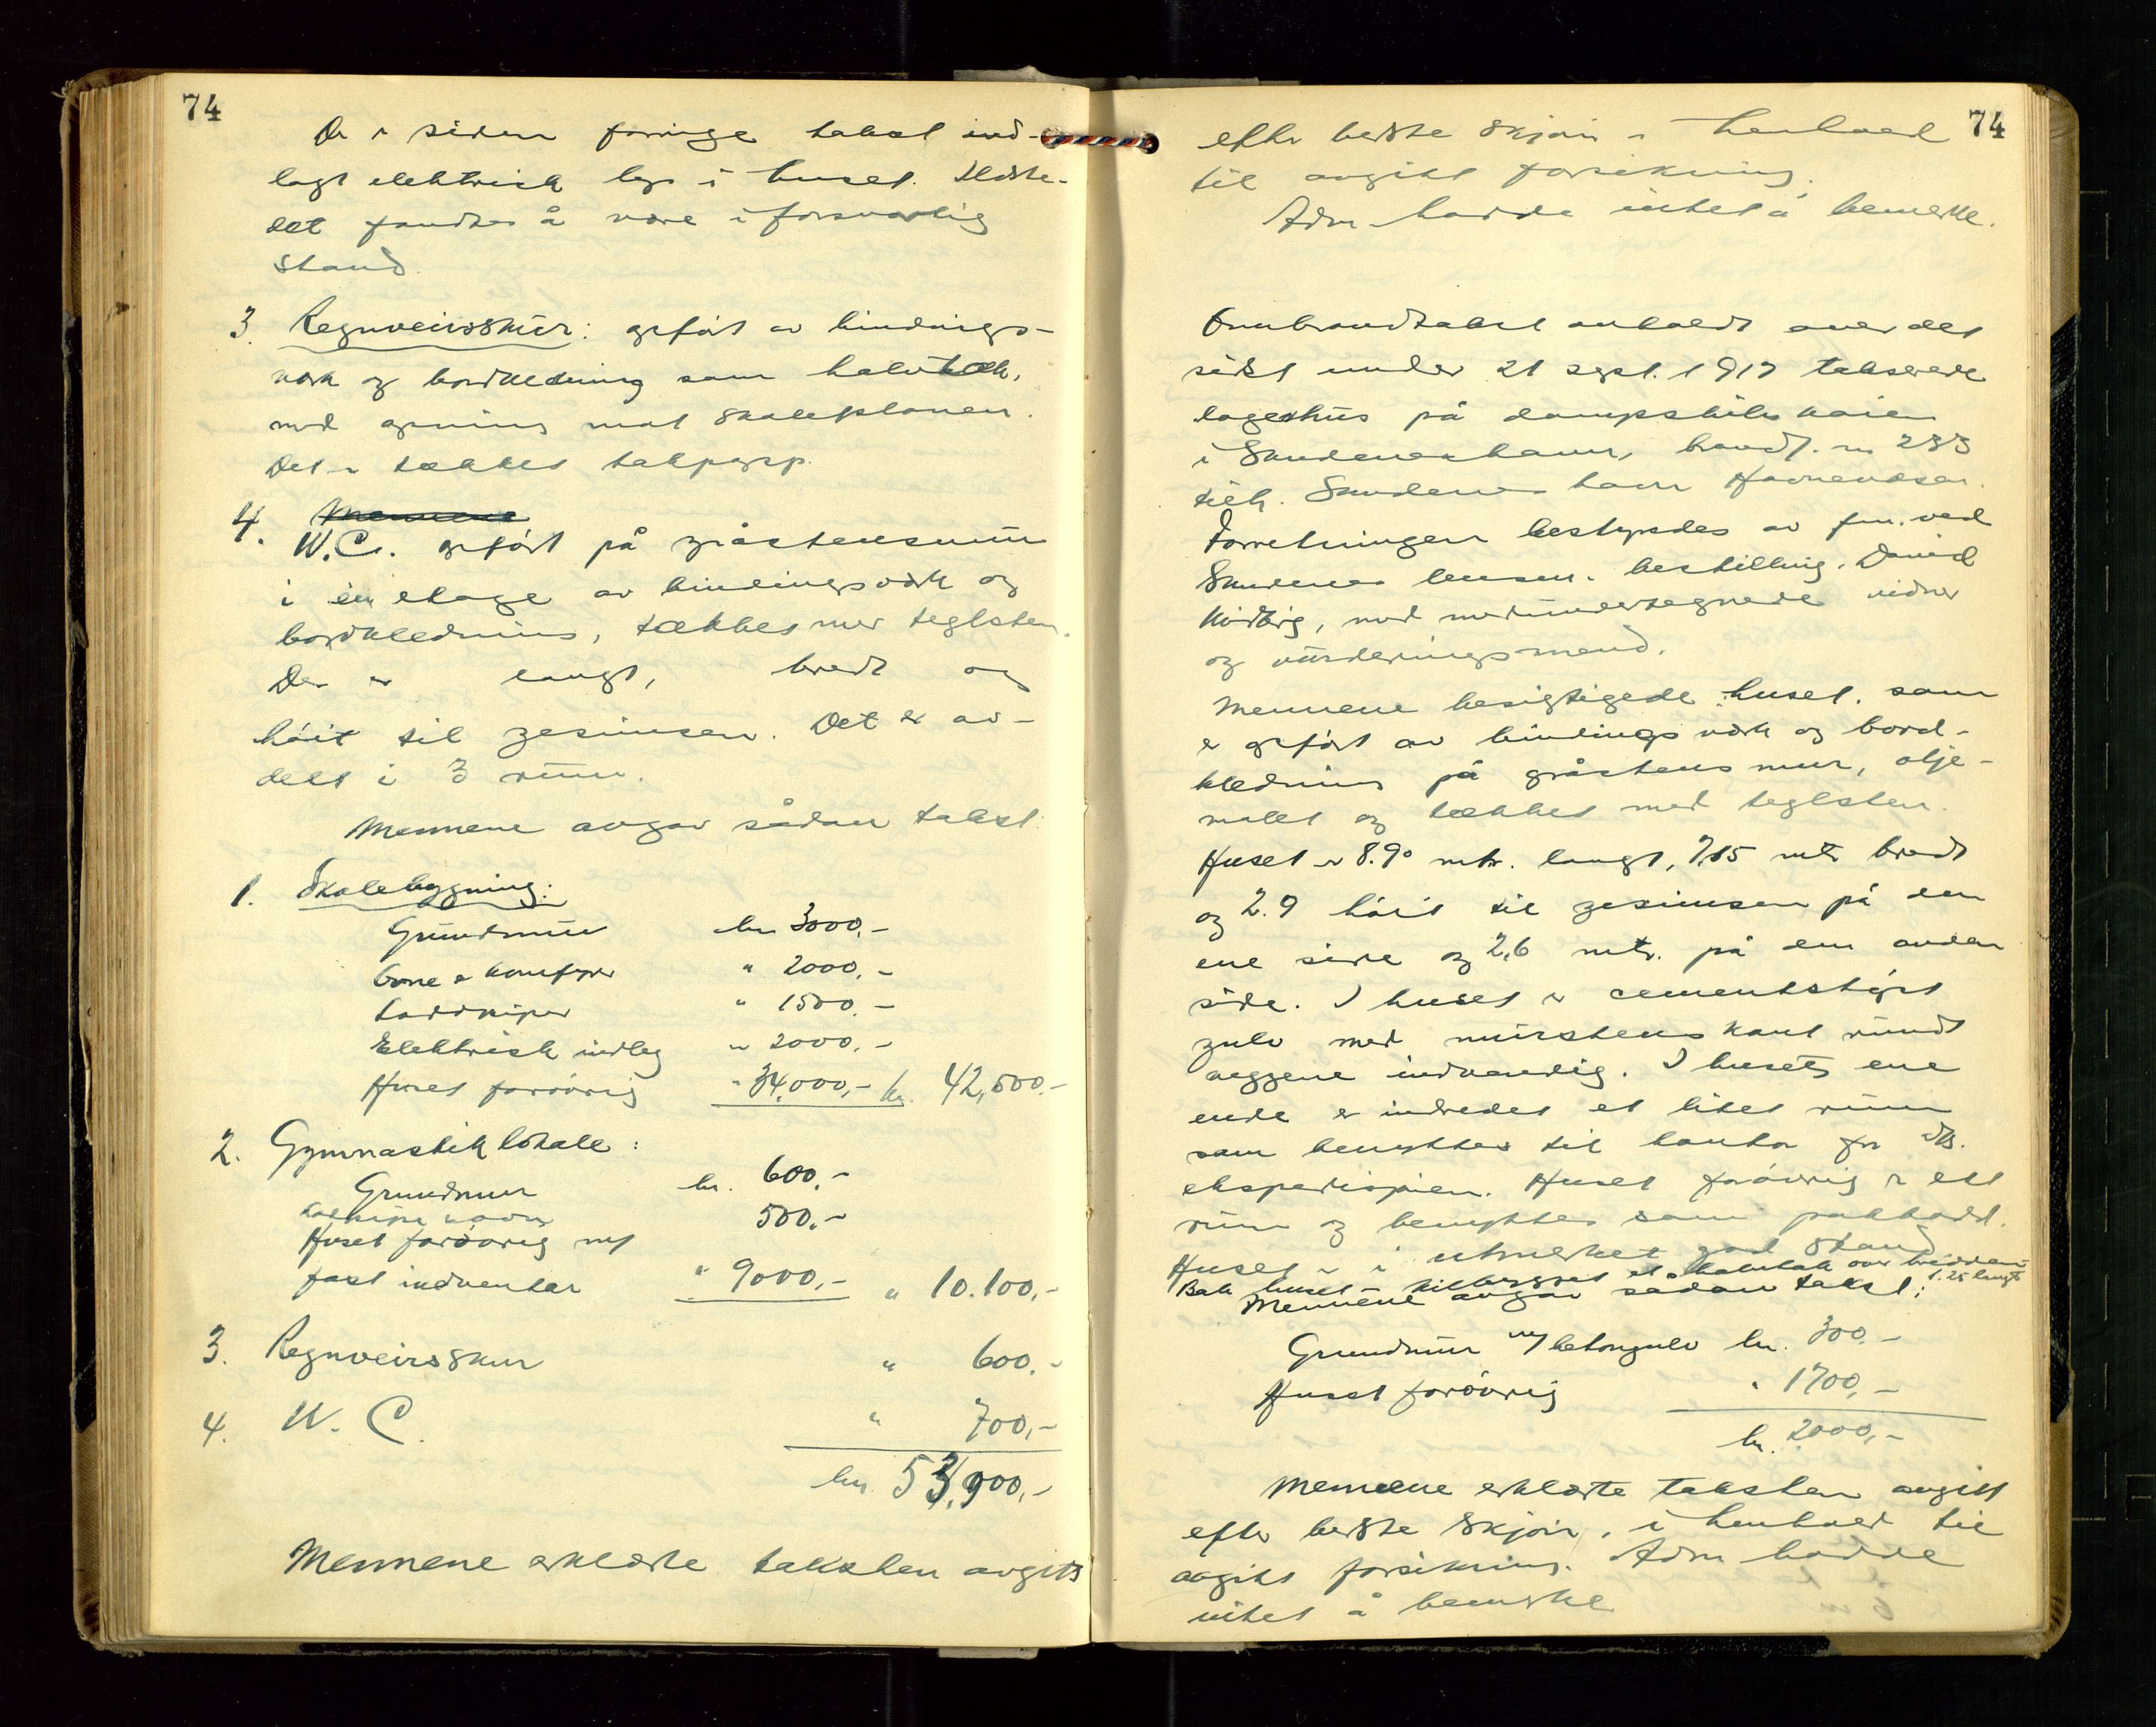 74
Der er siden forrige takst ind-
lagt elektrisk lys i huset. Ildste-
det fandtes å være i forsvarlig
stand.
3. Regnveirsskur: opført av bindings-
verk og bordklædning som halvtak,
med åpning mot skoleplanen.
Det er tækket takpap.
4. Mennene
W.C. opført på gråstensmur
i en etage av bindingsverk og
bordklædning, tækket med teglsten.
Der er langt, bredt og
høit til gesimsen. Det er av-
delt i 3 rum.
Mennene avgav sådan takst:
1. Skolebygning:
Grundmur kr 3000,-
Ovne & komfyrer " 2000,-
Lavdniper " 1500,-
Elektrisk indlæg " 2000,-
Huset forøvrig " 34,000,- kr. 42,500.-
2. Gymnastiklokale:
Grundmur kr. 600,-
500,-
Huset forøvrig m/
fast indventar " 9000,- " 10.100,-
3. Regnveirsskur " 600,-
4. W. C. " 700,-
kr. 53,900,-
Mennene erklærte taksten avgitt
74
efter bedste skjøn i henhold
til avgitt forsikring.
Adm. hadde intet å bemerke.
Ombrandtakst avholdt over det
sidst under 21 sept. 1917 takserede
lagerhus på dampskibskaien
i Skudeneshavn, brandf. nr 233
tilh. Skudenes havn Havnevæsen.
Forretningen bestyrdes av fm. ved
Skudenes lensm. bestilling, David
, med medundertegnede vidner
og vurderingsmænd.
Mennene besigtigede huset, som
er opført av bindingsverk og bord-
klædning på gråstensmur, olje-
malt og tækket med teglsten.
Huset er 8.90 mtr. langt, 7,15 mtr bredt
og 2.9 høit til gesimsen på den
ene side og 2,6 mtr. på den anden
side. I huset er cementstøpt
gulv med murstenskant rundt
væggene indvendig. I husets ene
ende er indredet et litet rum
som benyttes til kontor for ds.
ekspedisjonen. Huset forøvrig er ett
rum og benyttes som pakkbod.
Huset er i utmerket god stand
Bak huset er tilbygget et halvtak over bredden 1.25 langt
Mennene avgav sådan takst:
Grundmur m/ betongulv kr. 300,-
Huset forøvrig " 1700,-
kr. 2000,-
Mennene erklærte taksten avgitt
efter bedste skjøn, i henhold til
avgitt forsikring. Adm hadde
intet å bemerke